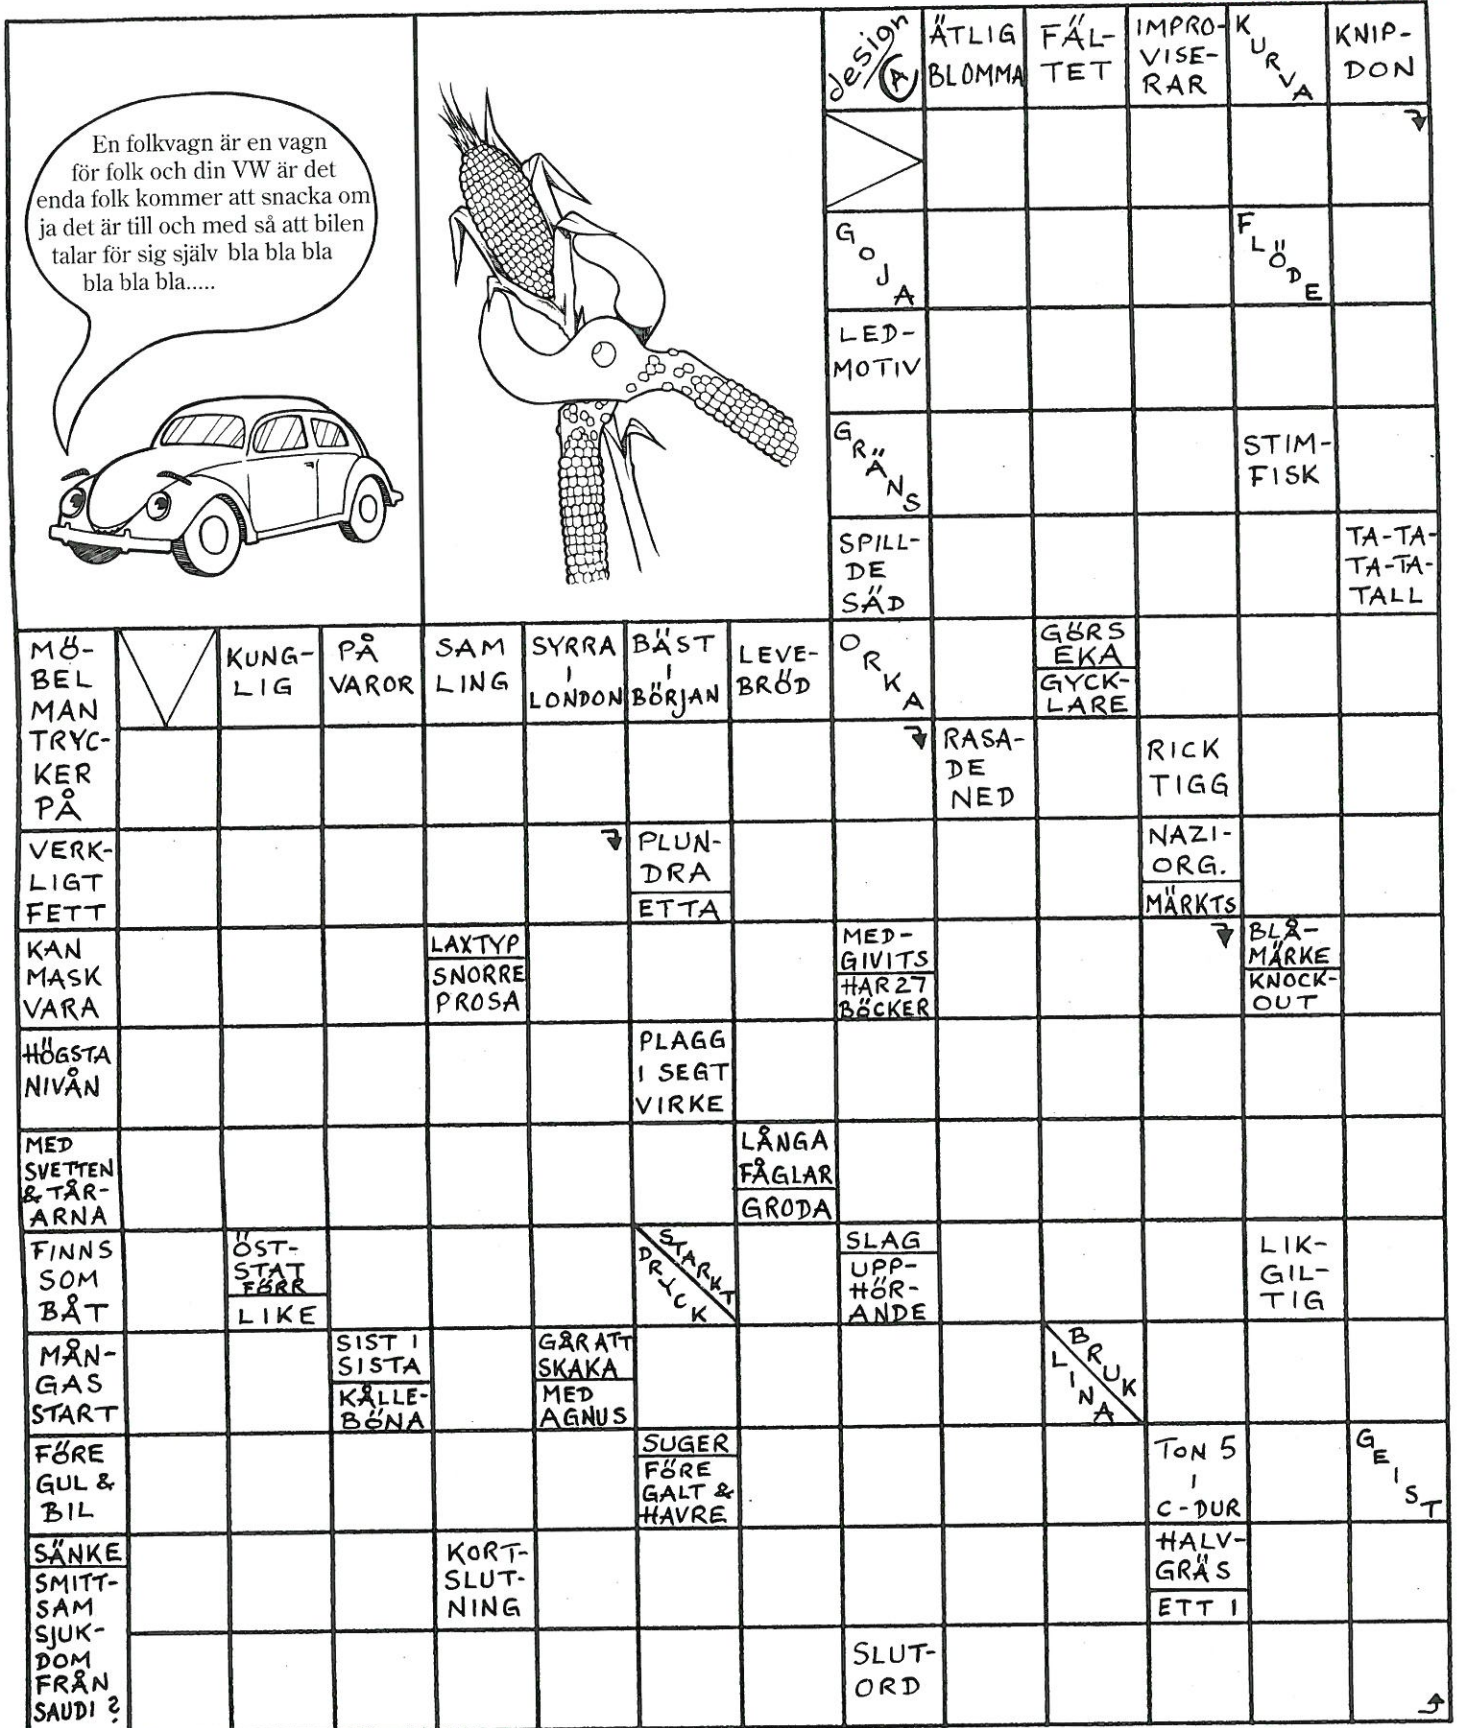 En folkvagn är en vagn
för folk och din VW är det
enda folk kommer att snacka om
ja det är till och med så att bilen
talar för sig själv bla bla bla
bla bla bla.....
design
A
ÄTLIG
BLOMMA
FÄL-
TET
IMPRO-
VISE-
RAR
KURVA
KNIP-
DON
GOJA
FLÖDE
LED-
MOTIV
GRÄNS
STIM-
FISK
SPILL-
DE
SÄD
TA-TA-
TA-TA-
TALL
MÖ-
BEL
MAN
TRYC-
KER
PÅ
KUNG-
LIG
PÅ
VAROR
SAM
LING
SYRRA
I
LONDON
BÄST
I
BÖRJAN
LEVE-
BRÖD
ORKA
GÖRS
EKA
GYCK-
LARE
RASA-
DE
NED
RICK
TIGG
VERK-
LIGT
FETT
PLUN-
DRA
ETTA
NAZI-
ORG.
MÄRKTS
KAN
MASK
VARA
LAXTYP
SNORRE
PROSA
MED-
GIVITS
HAR 27
BÖCKER
BLÅ-
MÄRKE
KNOCK-
OUT
HÖGSTA
NIVÅN
PLAGG
I SEGT
VIRKE
MED
SVETTEN
& TÅR-
ARNA
LÅNGA
FÅGLAR
GRODA
FINNS
SOM
BÅT
ÖST-
STAT
FÖRR
LIKE
STARKT
DRYCK
SLAG
UPP-
HÖR-
ANDE
LIK-
GIL-
TIG
MÅN-
GAS
START
SIST I
SISTA
KÅLLE-
BÖNA
GÅR ATT
SKAKA
MED
AGNUS
BRUK
LINA
FÖRE
GUL &
BIL
SUGER
FÖRE
GALT &
HAVRE
TON 5
I
C-DUR
GEIST
SÄNKE
SMITT-
SAM
SJUK-
DOM
FRÅN
SAUDI?
KORT-
SLUT-
NING
HALV-
GRÄS
ETT I
SLUT-
ORD